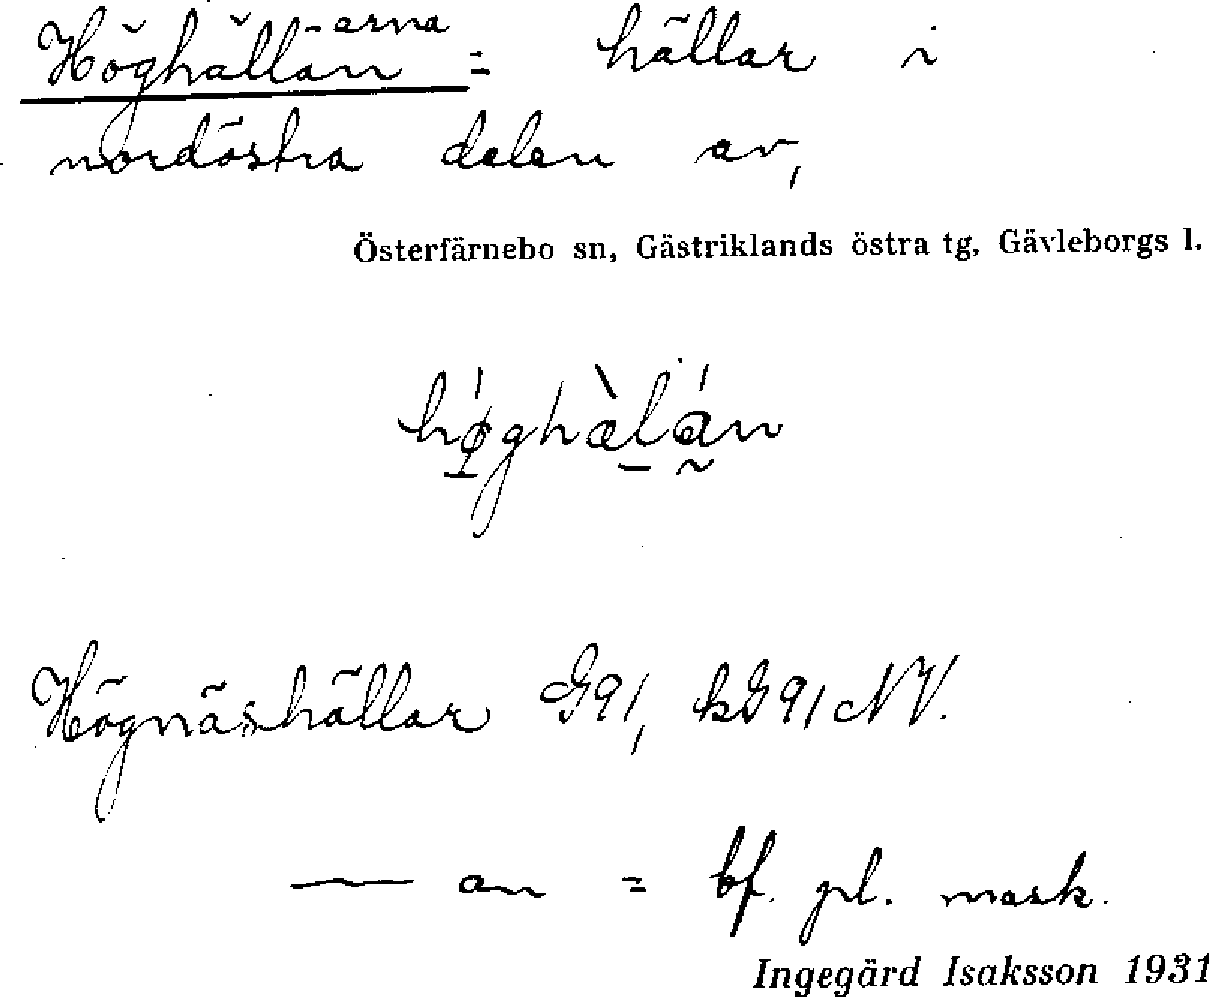 Höghällan -arna = hällar i
nordöstra delen av,
Österfärnebo sn, Gästriklands östra tg, Gävleborgs l.
Högnäshällar G91, kG91NV.
— an = bf. pl. mask.
Ingegärd Isaksson 1931